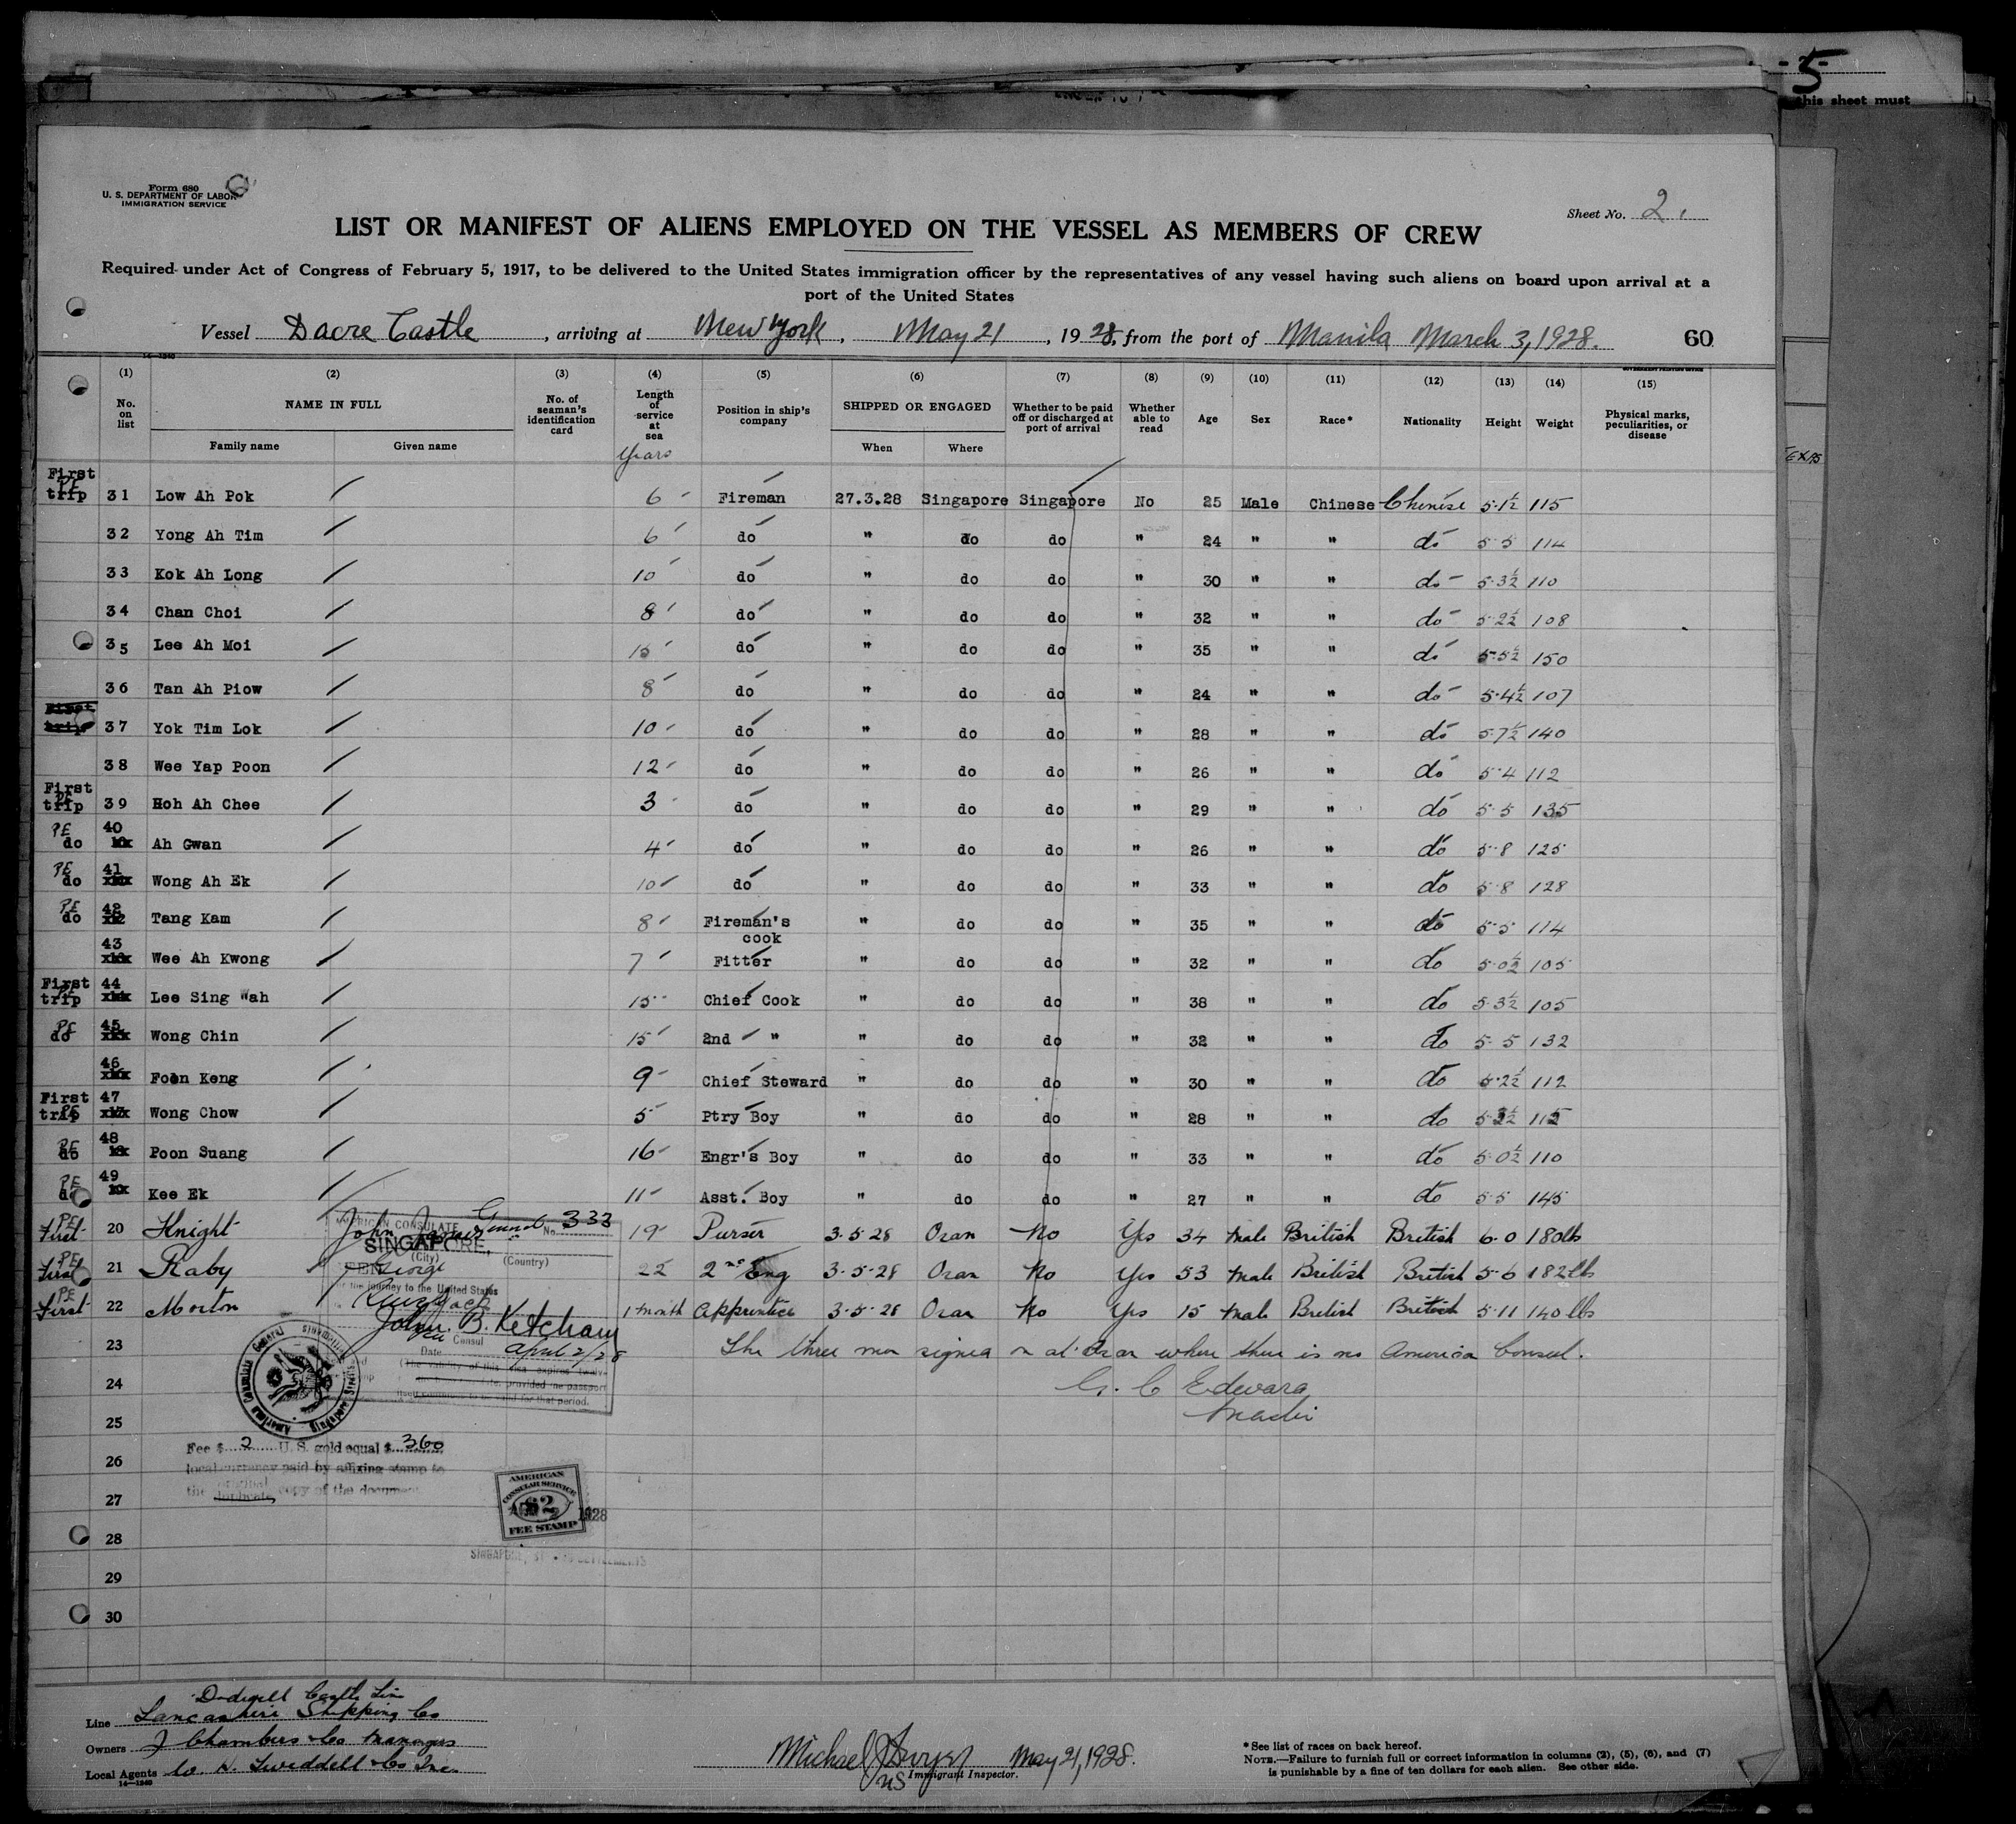 5
this sheet must
Form 680
U. S. DEPARTMENT OF LABOR
IMMIGRATION SERVICE
Sheet No. 2.
LIST OR MANIFEST OF ALIENS EMPLOYED ON THE VESSEL AS MEMBERS OF CREW
Required under Act of Congress of February 5, 1917, to be delivered to the United States immigration officer by the representatives of any vessel having such aliens on board upon arrival at a
port of the United States
Vessel Dacre Castle, arriving at New York, May 21, 1928, from the port of Manila March 3, 1928. 60
14-1240
(1) (2) (3) (4) (5) (6) (7) (8) (9) (10) (11) (12) (13) (14) (15)
No. on list NAME IN FULL No. of seaman's identification card Length of service at sea Position in ship's company SHIPPED OR ENGAGED Whether to be paid off or discharged at port of arrival Whether able to read Age Sex Race* Nationality Height Weight Physical marks, peculiarities, or disease
Family name Given name Years When Where
First trip PE 31 Low Ah Pok 6 Fireman 27.3.28 Singapore Singapore No 25 Male Chinese Chinese 5·1½ 115
32 Yong Ah Tim 6 do " do do " 24 " " do 5·5 114
33 Kok Ah Long 10 do " do do " 30 " " do 5·3½ 110
34 Chan Choi 8 do " do do " 32 " " do 5·2½ 108
35 Lee Ah Moi 15 do " do do " 35 " " do 5·5½ 150
36 Tan Ah Piow 8 do " do do " 24 " " do 5·4½ 107
First trip 37 Yok Tim Lok 10 do " do do " 28 " " do 5·7½ 140
38 Wee Yap Poon 12 do " do do " 26 " " do 5·4 112
First trip PE 39 Hoh Ah Chee 3 do " do do " 29 " " do 5·5 135
PE do 40 Ah Gwan 4 do " do do " 26 " " do 5·8 125
PE do 41 Wong Ah Ek 10 do " do do " 33 " " do 5·8 128
PE do 42 Tang Kam 8 Fireman's cook " do do " 35 " " do 5·5 114
43 Wee Ah Kwong 7 Fitter " do do " 32 " " do 5·0½ 105
First trip PE 44 Lee Sing Wah 15 Chief Cook " do do " 38 " " do 5·3½ 105
PE do 45 Wong Chin 15 2nd " " do do " 32 " " do 5·5 132
46 Foon Keng 9 Chief Steward " do do " 30 " " do 5·2½ 112
First trip PE 47 Wong Chow 5 Ptry Boy " do do " 28 " " do
PE do 48 Poon Suang 16 Engr's Boy " do do " 33 " " do 5·0½ 110
PE do 49 Kee Ek 11 Asst. Boy " do do " 27 " " do 5·5 145
PE First 20 Knight John 19 Purser 3·5·28 Oran No Yes 34 Male British British 6·0 180lbs
PE First 21 Raby George 22 2nd Eng 3·5·28 Oran No Yes 53 Male British British 5·6 182lbs
PE First 22 Morton Jack 1 month Apprentice 3·5·28 Oran No Yes 15 Male British British 5·11 140 lbs
23 The three men signed on at Oran where there is no American Consul.
24 G. C Edward
25 Master
26
27
28
29
30
AMERICAN CONSULATE No. 333
SINGAPORE,
(City) (Country)
SEEN
the journey to the United States
John B. Ketcham
Vice Consul
Date April 2/28
(The validity of this visa expires twelve
provided the passport
for that period.
American Consulate General
Fee $ 2 U. S. gold equal $ 3.60
local currency paid by affixing stamp to
the original duplicate copy of the document
AMERICAN
CONSULAR SERVICE
$2
FEE STAMP
1928
SINGAPORE, STRAITS SETTLEMENTS
Dodwell Castle Line
Line Lancashire Shipping Co
Owners J Chambers & Co Managers
Local Agents W. H. Tweddell & Co Inc.
14-1240
Michael May 21, 1928.
US Immigrant Inspector.
* See list of races on back hereof.
NOTE.—Failure to furnish full or correct information in columns (2), (5), (6), and (7)
is punishable by a fine of ten dollars for each alien. See other side.